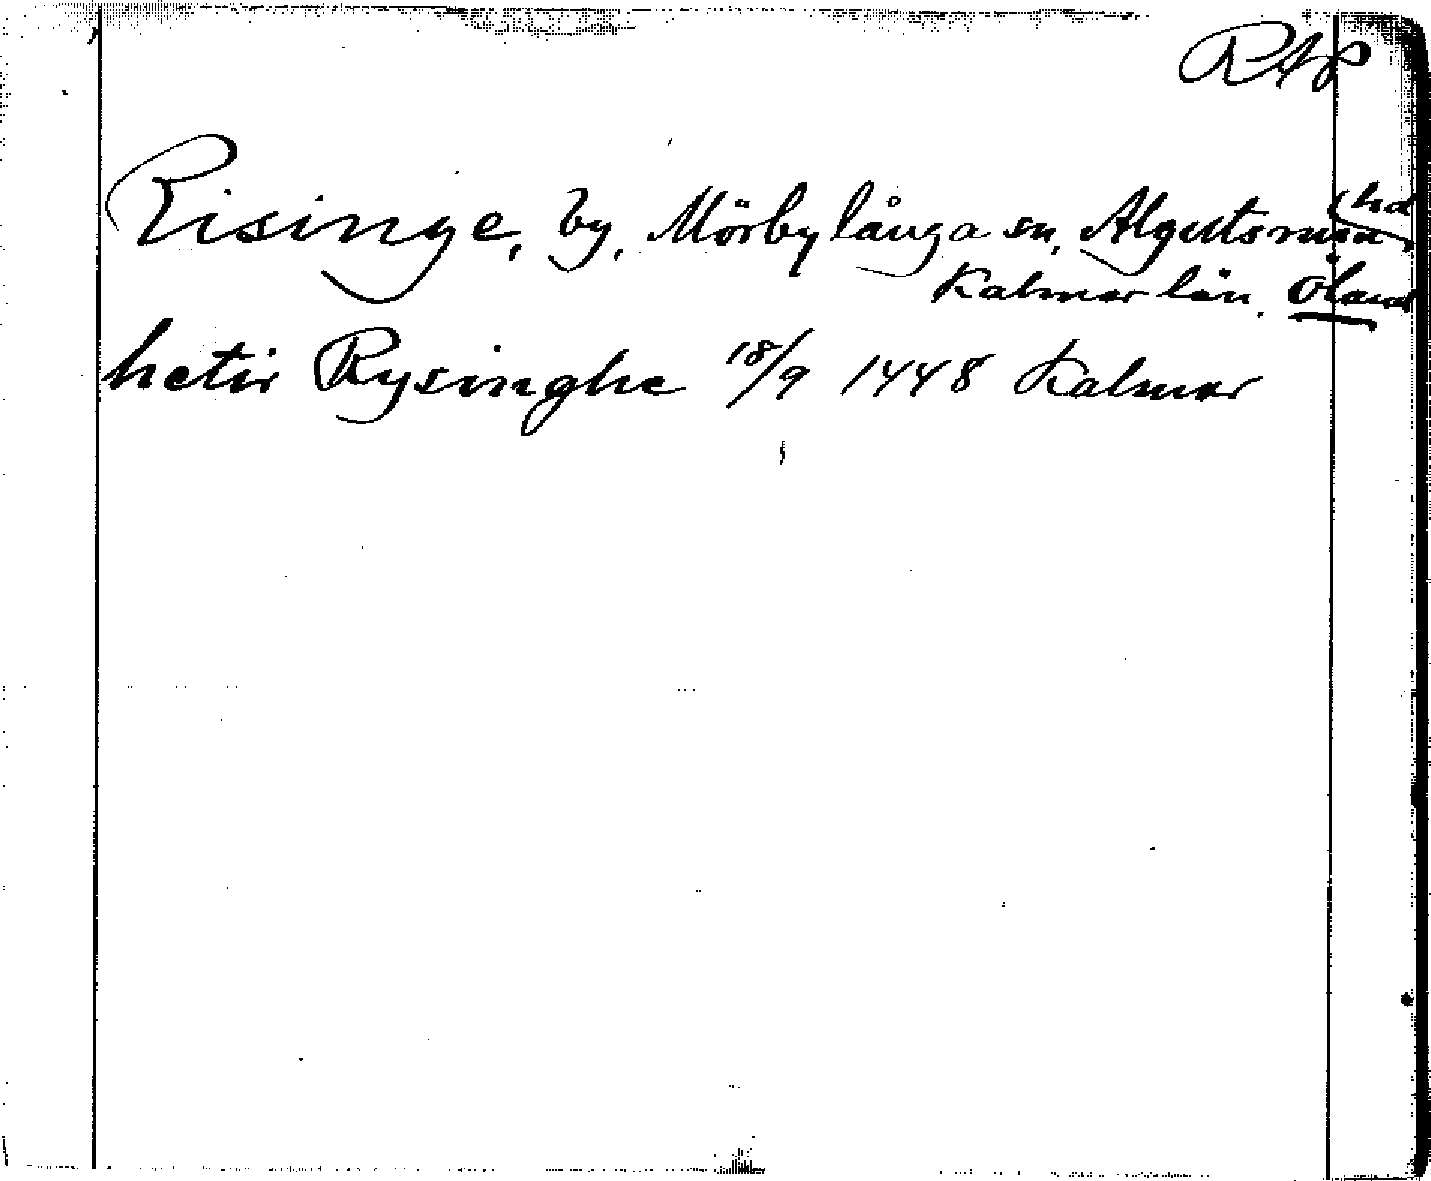 RAP
Risinge, by, Mörbylånga sn, Algutsrums hd
Kalmar län. Öland
hetir Rysinghe 18/9 1448 Kalmar